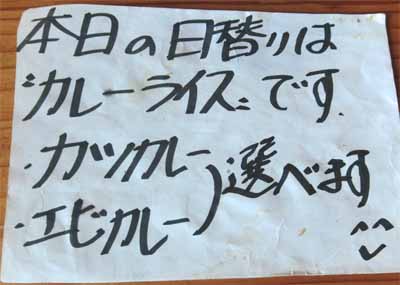 本日の日替りは
"カレーライス"です.
・カツカレー
・エビカレー)選べます
^^